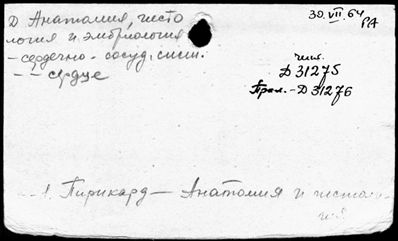 Д Анатомия, гисто
логия и эмбриология
- сердечно-сосуд. сист.
- - сердце
30.VII.64
РА
чит.
Д 31275
Прол.-Д 31276
1. Перикард - Анатомия и гистоло-
гия